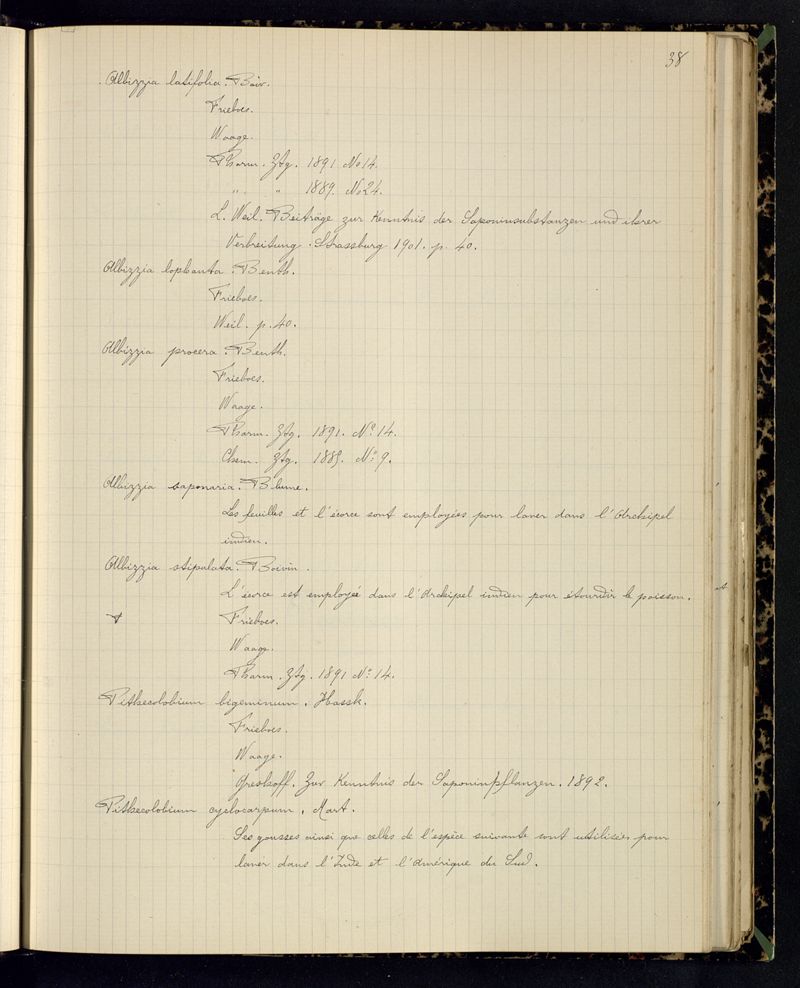 38
Albizzia latifolia. Boiv.
Frieboes.
Waage.
Pharm. Ztg. 1891 No 14.
" " 1889. No 24.
L. Weil. Beiträge zur Kenntnis der Saponinsubstanzen und ihrer
Verbreitung. Strassburg 1901. p. 40.
Albizzia lophanta. Benth.
Frieboes.
Weil. p. 40.
Albizzia procera. Benth.
Frieboes.
Waage.
Pharm. Ztg. 1891. No 14.
Chem. Ztg. 1889. No 9.
Albizzia saponaria. Blume.
Les feuilles et l'écorce sont employées pour laver dans l'Archipel
indien.
Albizzia stipulata. Boivin.
L'écorce est employée dans l'Archipel indien pour étourdir le poisson.
Frieboes.
Waage.
Pharm. Ztg. 1891 No 14.
Pithecolobium bigeminum. Hassk.
Frieboes.
Waage.
Greshoff. Zur Kenntnis der Saponinpflanzen. 1892.
Pithecolobium cyclocarpum. Mart.
Ses gousses ainsi que celles de l'espèce suivante sont utilisées pour
laver dans l'Inde et l'Amérique du Sud.